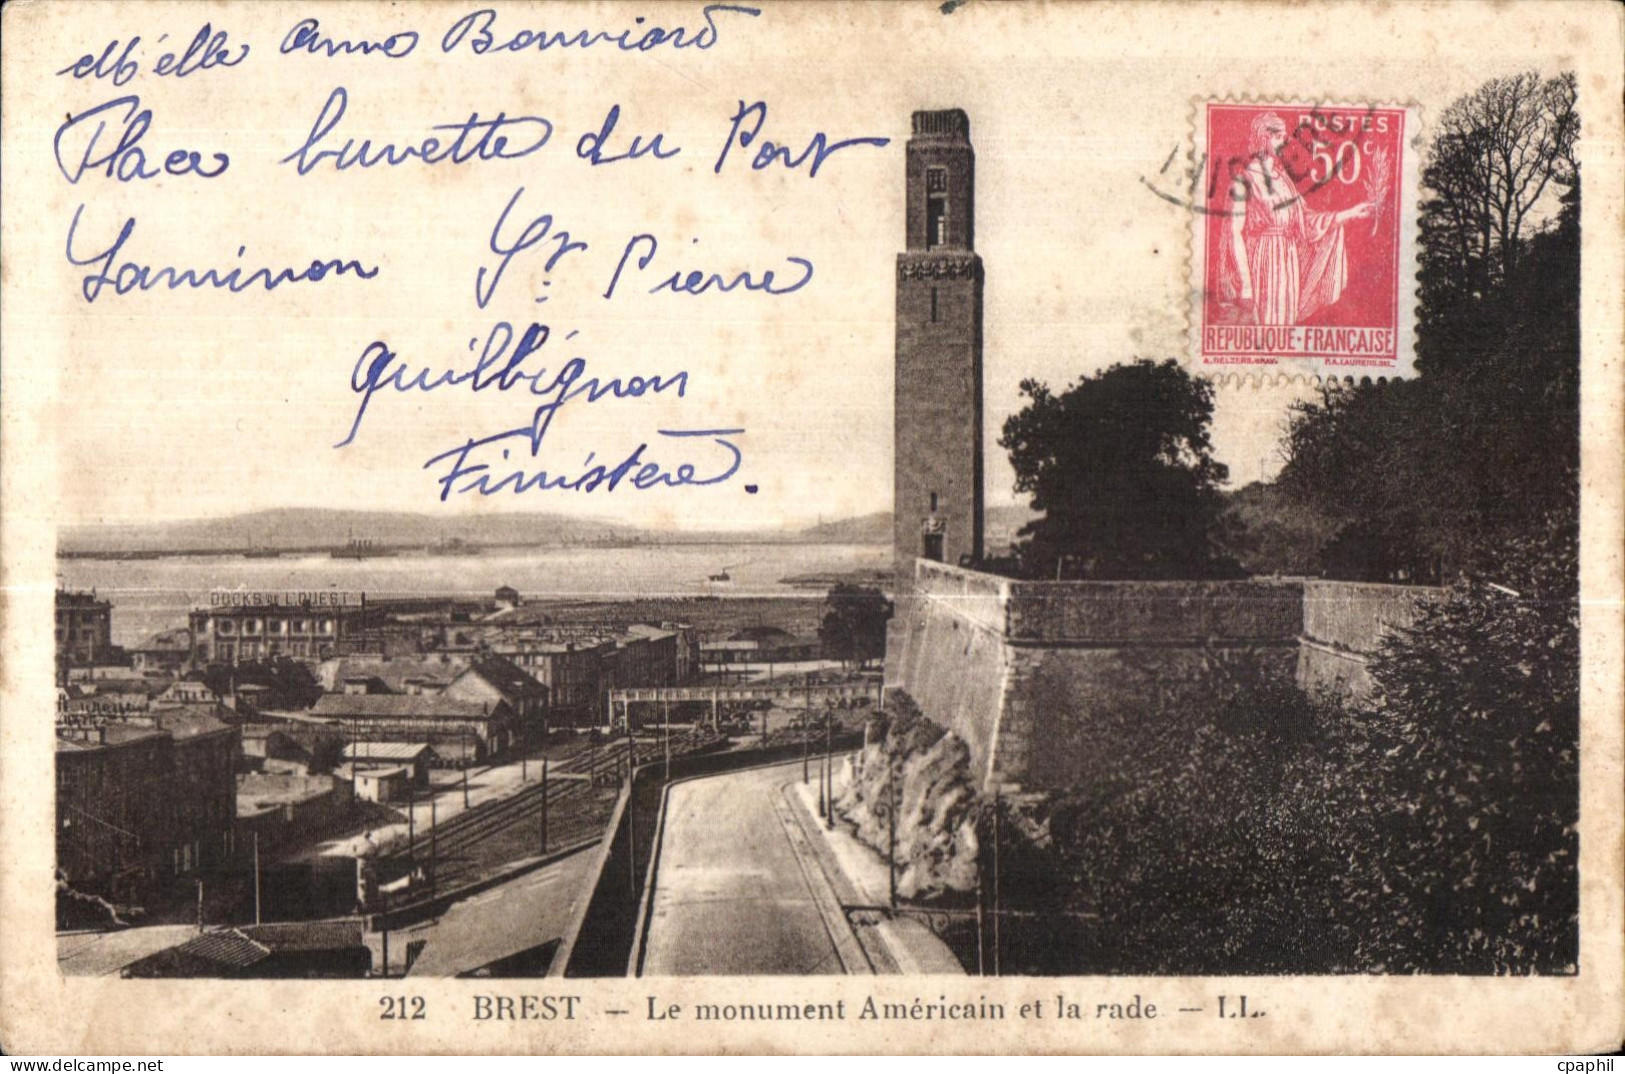 Melle Anna Bonviard
Place buvette du Port
Laninon St. Pierre
Quilbignon
Finistère.
POSTES
50c
INISTÈRE
RÉPUBLIQUE·FRANÇAISE
A. DELZERS. GRAV. P.A. LAURENS. DEL.
DOCKS DE L'OUEST
212 BREST — Le monument Américain et la rade — LL.
cpaphil